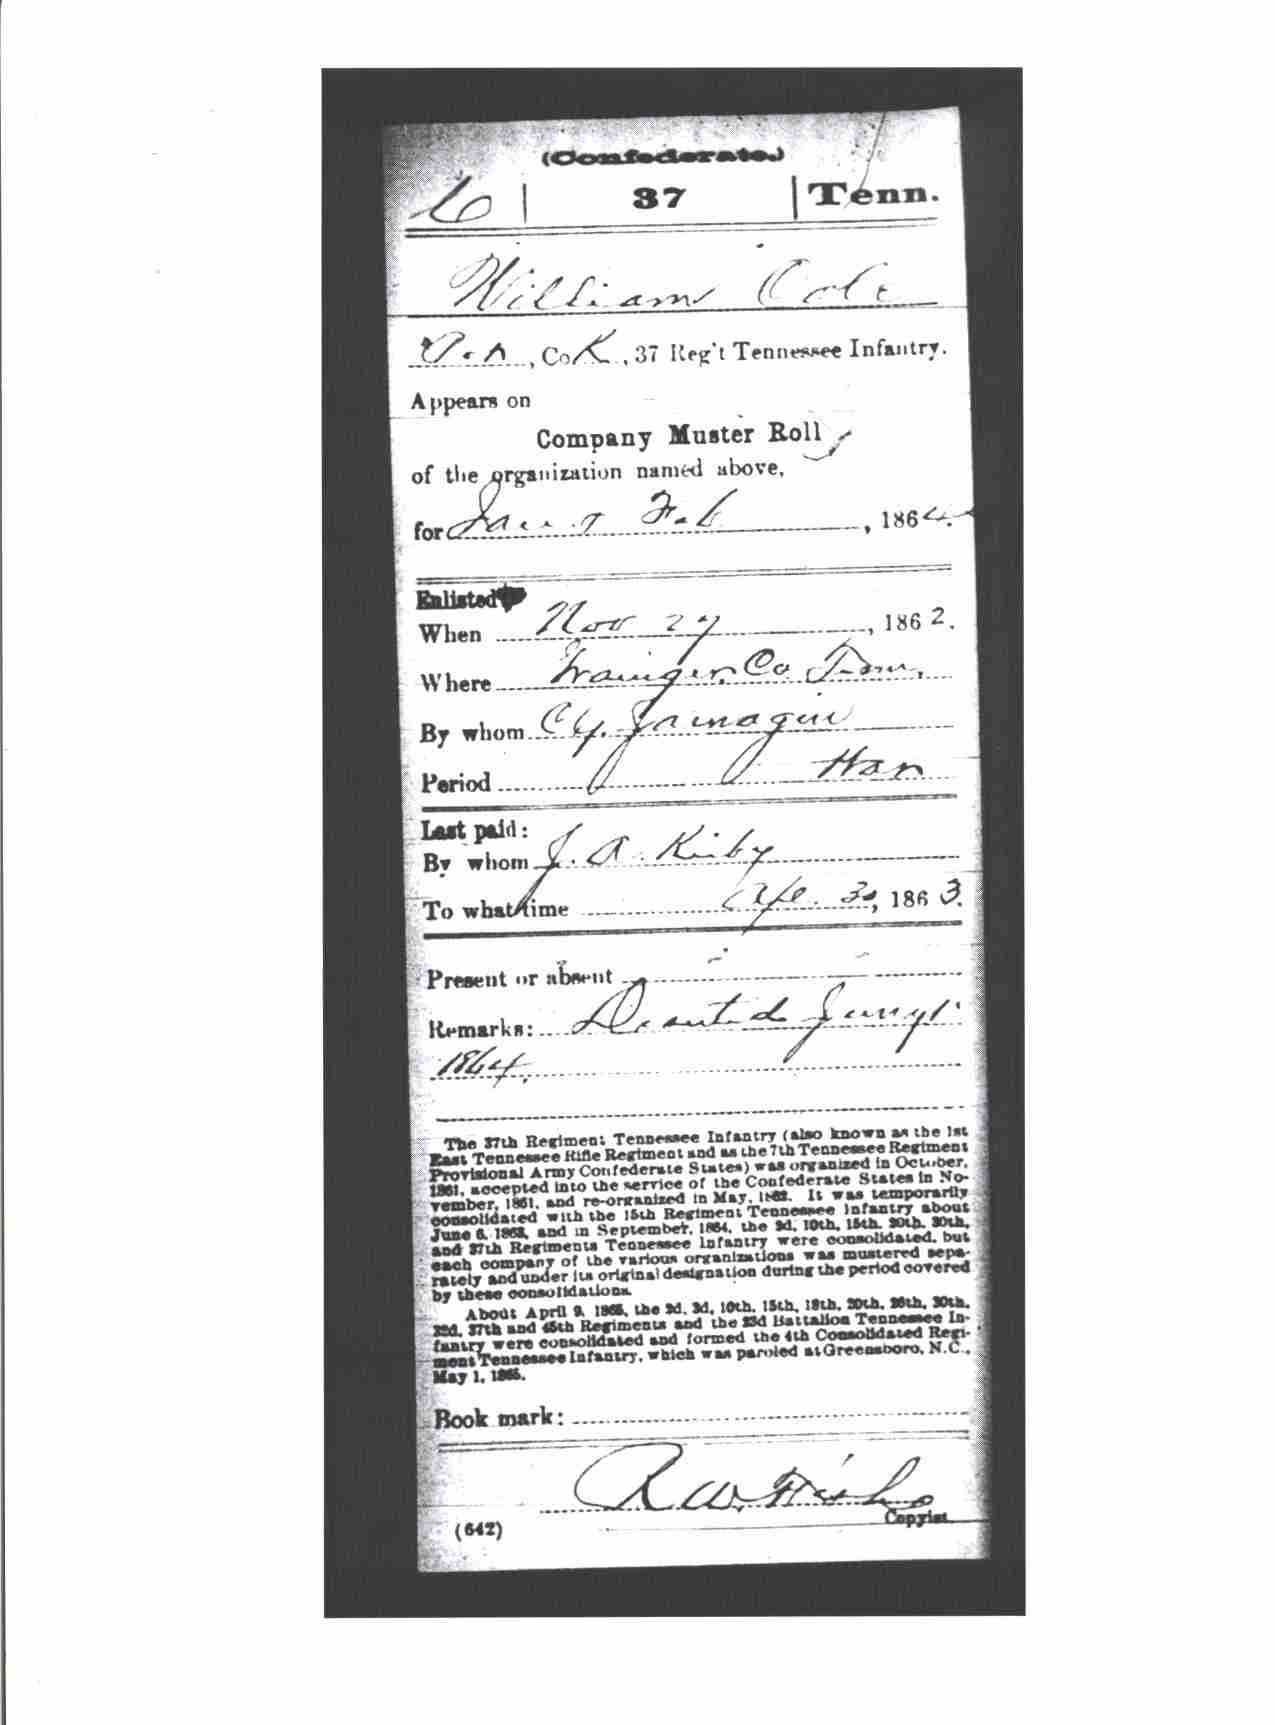 (Confederate.)
C | 37 | Tenn.
William Cole
Pvt, Co K, 37 Reg't Tennessee Infantry.
Appears on
Company Muster Roll
of the organization named above,
for Jan & Feb, 1864.
Enlisted:
When Nov 27, 1862.
Where Grainger Co Tenn.
By whom Cy. Jarnagin
Period War
Last paid:
By whom J. A. Kirby
To what time Apl. 30, 1863.
Present or absent
Remarks: Deserted Jany 1
1864.
The 37th Regiment Tennessee Infantry (also known as the 1st
East Tennessee Rifle Regiment and as the 7th Tennessee Regiment
Provisional Army Confederate States) was organized in October,
1861, accepted into the service of the Confederate States in No-
vember, 1861, and re-organized in May, 1862. It was temporarily
consolidated with the 15th Regiment Tennessee Infantry about
June 6, 1863, and in September, 1864, the 2d, 10th, 15th, 20th, 30th,
and 37th Regiments Tennessee Infantry were consolidated, but
each company of the various organizations was mustered sepa-
rately and under its original designation during the period covered
by these consolidations.
About April 9, 1865, the 2d, 3d, 10th, 15th, 18th, 20th, 26th, 30th,
32d, 37th and 45th Regiments and the 23d Battalion Tennessee In-
fantry were consolidated and formed the 4th Consolidated Regi-
ment Tennessee Infantry, which was paroled at Greensboro, N.C.,
May 1, 1865.
Book mark:
R W. Fisher
(642)
Copyist.